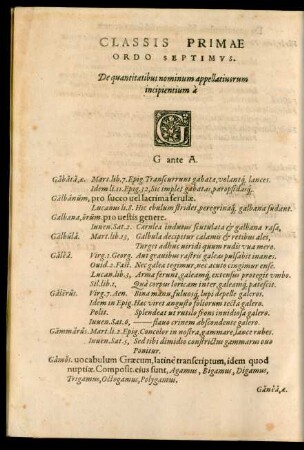 CLASSIS PRIMAE
ORDO SEPTIMVS.
De quantitatibus nominum appellatiuorum
incipientium à
G
G ante A.
Găbătă, æ. Mart. lib. 7. Epig. Transcurrunt gabatæ, volantq; lances.
Idem li. 11. Epig. 32, Sic implet gabatas, paropsidasq;.
Galbănum, pro succo uel lacrima ferulæ.
Lucanus li. 8. Hic ebulum strides, peregrinaq; galbana sudant.
Galbana, ōrum, pro uestis genere.
Iuuen. Sat. 2. Cærulea indutus scutulata & galbana rasa,
Galbŭlă. Mart. lib. 13. Galbula decipitur calamis & retibus ales,
Turget adhuc uiridi quum rudis vua mero.
Gălĕă. Virg. 2. Georg. Aut grauibus rastris galeas pulsabit inanes.
Ouid. 2. Fast. Nec galea tegimur, nec acuto cingimur ense.
Lucan. lib. 3, Arma ferens, galeamq; extensus protegit vmbo.
Sil. lib. 1, Quâ corpus loricam inter, galeamq; patescit.
Gălērŭs. Virg. 7. Aen. Bina manu, fuluosq; lupi depelle galeros.
Idem in Epig. Hac viret angusto foliorum tecta galero.
Polit. Splendeat ut rutilo frons inuidiosa galero.
Iuuen. Sat. 6, —flauo crinem abscondente galero.
Gammărŭs. Mart. li. 2. Epig. Concolor in nostra, gammare, lance rubes.
Iuuen. Sat. 5, Sed tibi dimidio constrictus gammarus ouo
Ponitur.
Gămŏs. uocabulum Græcum, latinè transcriptum, idem quod
nuptiæ. Composit. eius sunt, Agamus, Bigamus, Digamus,
Trigamus, Octogamus, Polygamus.
Gănĕă, æ.